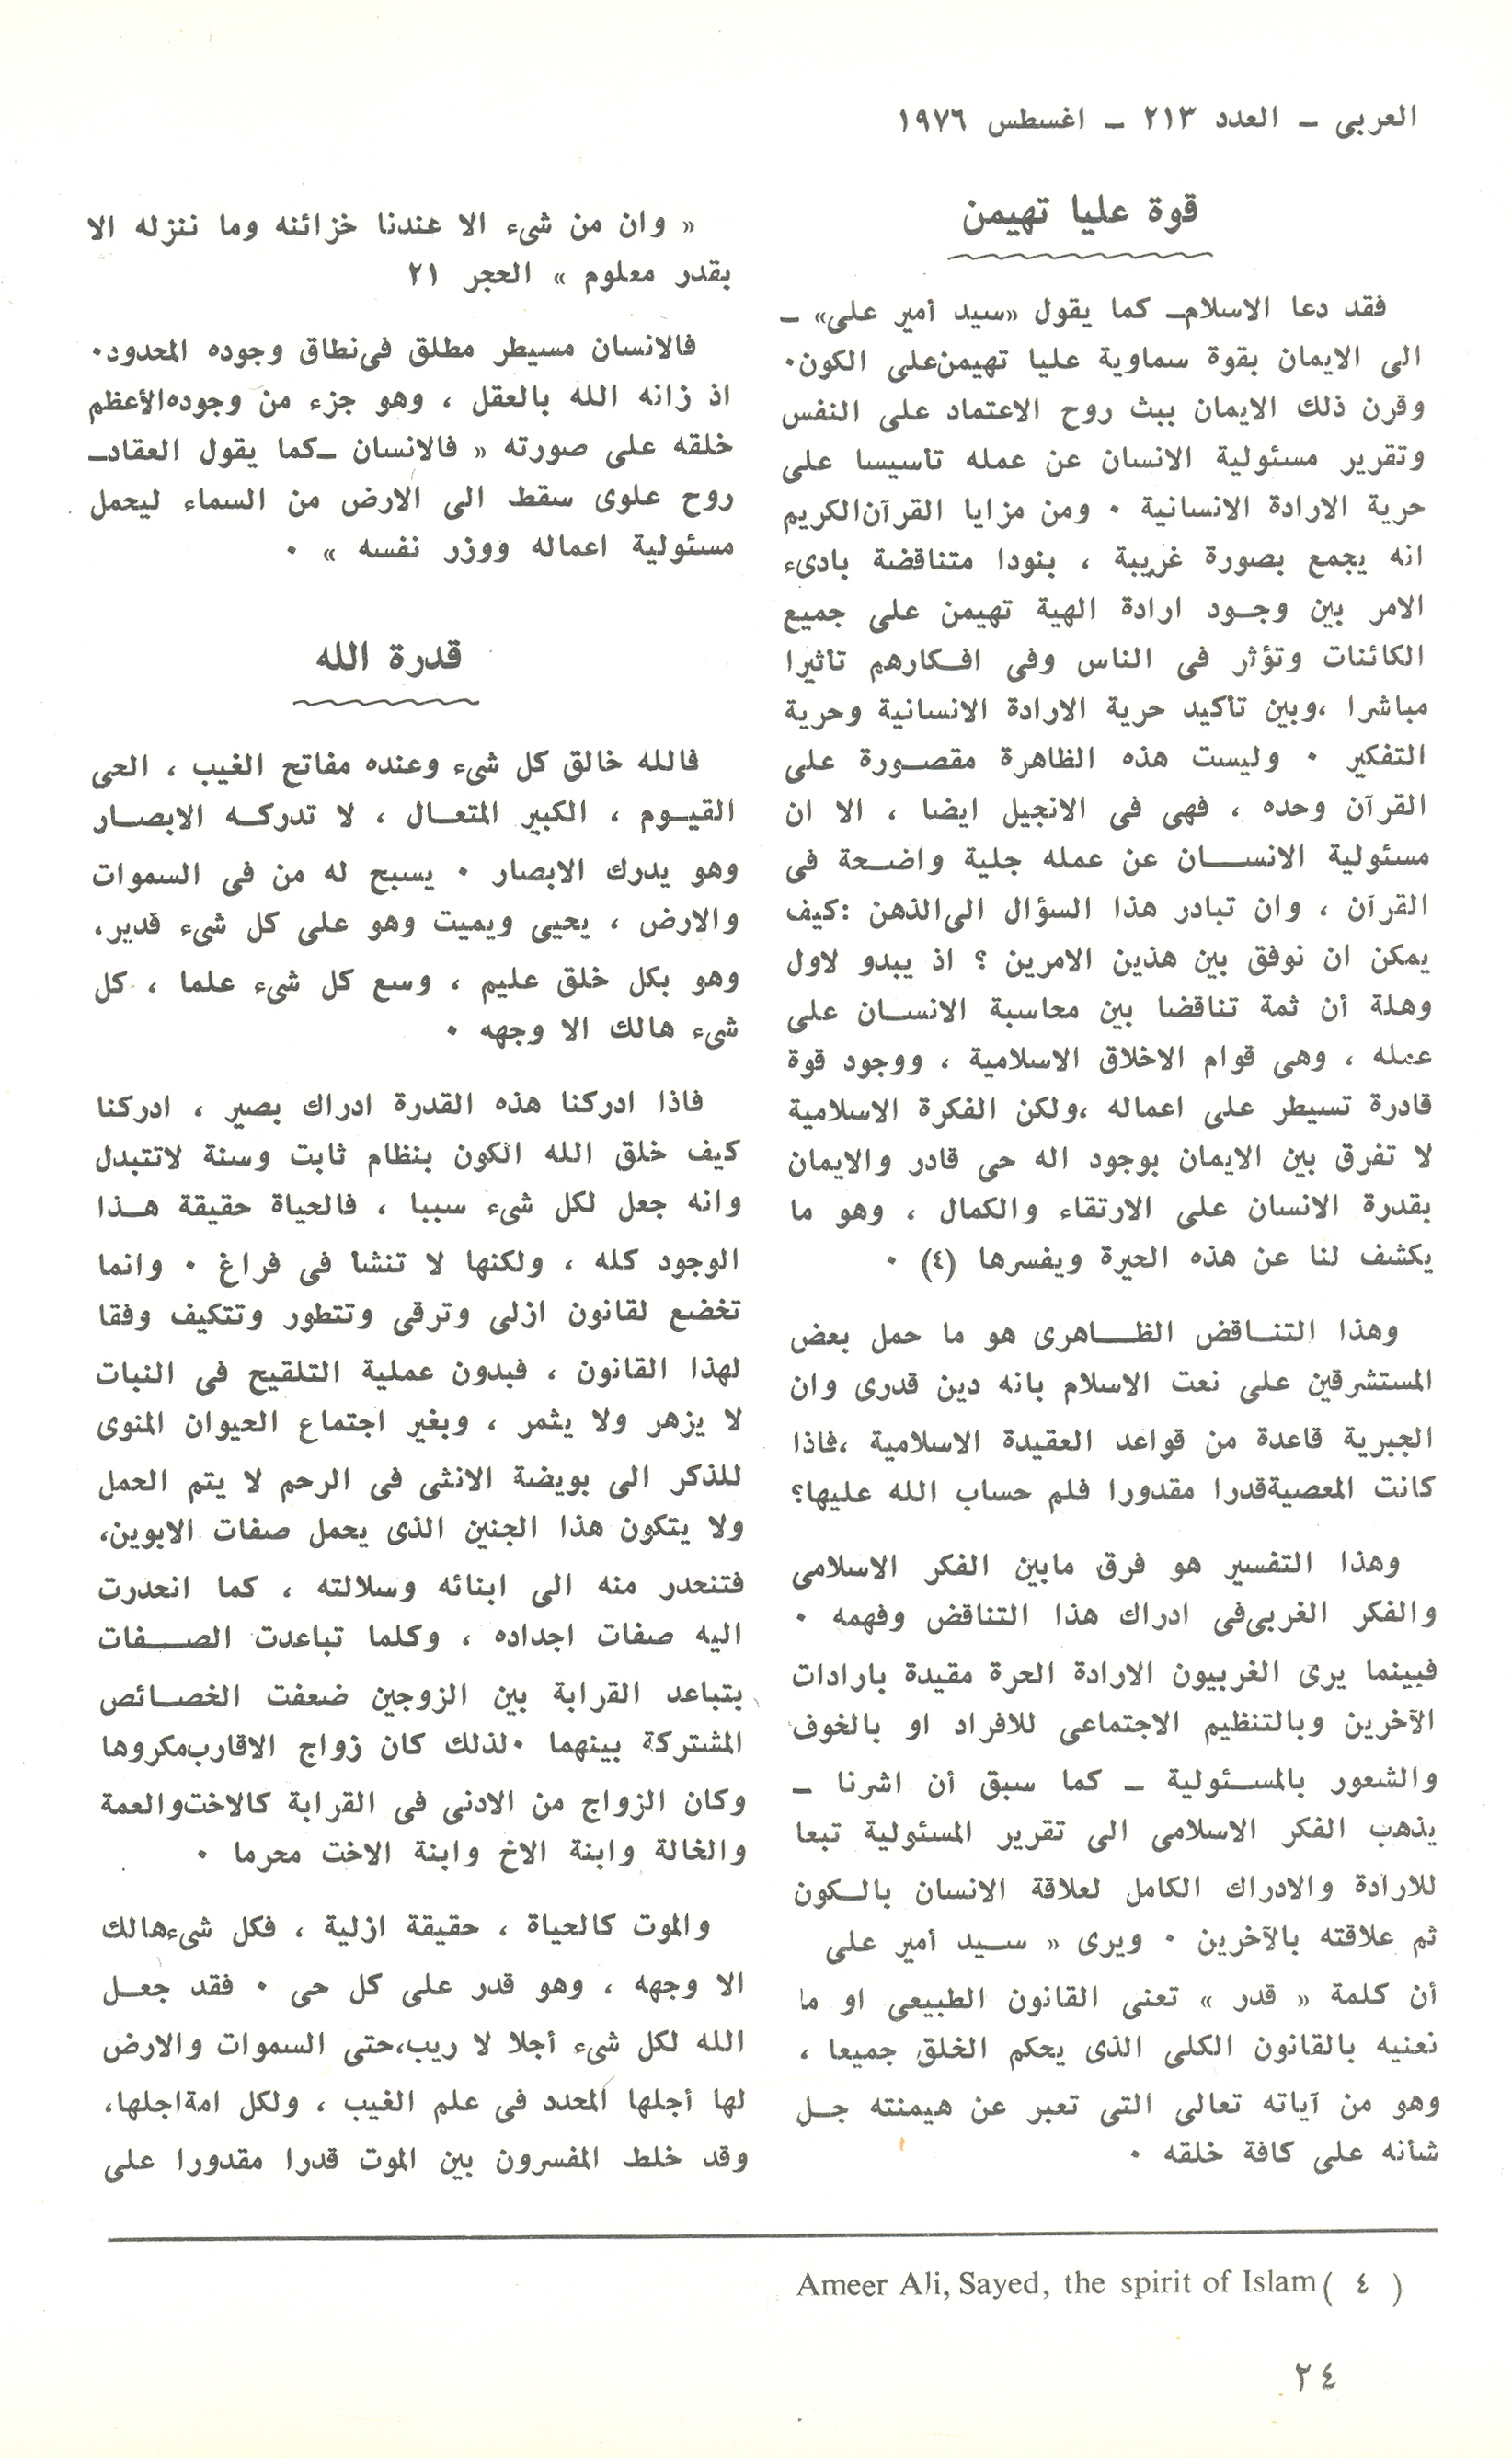 العربى – العدد ٢١٣ – اغسطس ١٩٧٦
قوة عليا تهيمن
فقد دعا الاسلام– كما يقول «سيد أمير على» –
الى الايمان بقوة سماوية عليا تهيمن على الكون٠
وقرن ذلك الايمان ببث روح الاعتماد على النفس
وتقرير مسئولية الانسان عن عمله تأسيسا على
حرية الارادة الانسانية ٠ ومن مزايا القرآن الكريم
انه يجمع بصورة غريبة ، بنودا متناقضة بادىء
الامر بين وجود ارادة الهية تهيمن على جميع
الكائنات وتؤثر فى الناس وفى افكارهم تأثيرا
مباشرا ،وبين تأكيد حرية الارادة الانسانية وحرية
التفكير ٠ وليست هذه الظاهرة مقصورة على
القرآن وحده ، فهى فى الانجيل ايضا ، الا ان
مسئولية الانسان عن عمله جلية واضحة فى
القرآن ، وان تبادر هذا السؤال الى الذهن :كيف
يمكن ان نوفق بين هذين الامرين ؟ اذ يبدو لاول
وهلة أن ثمة تناقضا بين محاسبة الانسان على
عمله ، وهى قوام الاخلاق الاسلامية ، ووجود قوة
قادرة تسيطر على اعماله ،ولكن الفكرة الاسلامية
لا تفرق بين الايمان بوجود اله حى قادر والايمان
بقدرة الانسان على الارتقاء والكمال ، وهو ما
يكشف لنا عن هذه الحيرة ويفسرها (٤) ٠
وهذا التناقض الظاهرى هو ما حمل بعض
المستشرقين على نعت الاسلام بانه دين قدرى وان
الجبرية قاعدة من قواعد العقيدة الاسلامية ،فاذا
كانت المعصية قدرا مقدورا فلم حساب الله عليها؟
وهذا التفسير هو فرق مابين الفكر الاسلامى
والفكر الغربى فى ادراك هذا التناقض وفهمه ٠
فبينما يرى الغربيون الارادة الحرة مقيدة بارادات
الآخرين وبالتنظيم الاجتماعى للافراد او بالخوف
والشعور بالمسئولية – كما سبق أن اشرنا –
يذهب الفكر الاسلامى الى تقرير المسئولية تبعا
للارادة والادراك الكامل لعلاقة الانسان بالكون
ثم علاقته بالآخرين ٠ ويرى « سيد أمير على
أن كلمة « قدر » تعنى القانون الطبيعى او ما
نعنيه بالقانون الكلى الذى يحكم الخلق جميعا ،
وهو من آياته تعالى التى تعبر عن هيمنته جل
شأنه على كافة خلقه ٠
« وان من شىء الا عندنا خزائنه وما ننزله الا
بقدر معلوم » الحجر ٢١
فالانسان مسيطر مطلق فى نطاق وجوده المحدود٠
اذ زانه الله بالعقل ، وهو جزء من وجوده الأعظم
خلقه على صورته « فالانسان –كما يقول العقاد–
روح علوى سقط الى الارض من السماء ليحمل
مسئولية اعماله ووزر نفسه » ٠
قدرة الله
فالله خالق كل شىء وعنده مفاتح الغيب ، الحى
القيوم ، الكبير المتعال ، لا تدركه الابصار
وهو يدرك الابصار ٠ يسبح له من فى السموات
والارض ، يحيى ويميت وهو على كل شىء قدير،
وهو بكل خلق عليم ، وسع كل شىء علما ، كل
شىء هالك الا وجهه ٠
فاذا ادركنا هذه القدرة ادراك بصير ، ادركنا
كيف خلق الله الكون بنظام ثابت وسنة لاتتبدل
وانه جعل لكل شىء سببا ، فالحياة حقيقة هذا
الوجود كله ، ولكنها لا تنشأ فى فراغ ٠ وانما
تخضع لقانون ازلى وترقى وتتطور وتتكيف وفقا
لهذا القانون ، فبدون عملية التلقيح فى النبات
لا يزهر ولا يثمر ، وبغير اجتماع الحيوان المنوى
للذكر الى بويضة الانثى فى الرحم لا يتم الحمل
ولا يتكون هذا الجنين الذى يحمل صفات الابوين،
فتنحدر منه الى ابنائه وسلالته ، كما انحدرت
اليه صفات اجداده ، وكلما تباعدت الصفات
بتباعد القرابة بين الزوجين ضعفت الخصائص
المشتركة بينهما ٠لذلك كان زواج الاقارب مكروها
وكان الزواج من الادنى فى القرابة كالاخت والعمة
والخالة وابنة الاخ وابنة الاخت محرما ٠
والموت كالحياة ، حقيقة ازلية ، فكل شىء هالك
الا وجهه ، وهو قدر على كل حى ٠ فقد جعل
الله لكل شىء أجلا لا ريب،حتى السموات والارض
لها أجلها المحدد فى علم الغيب ، ولكل امة اجلها،
وقد خلط المفسرون بين الموت قدرا مقدورا على
Ameer Ali, Sayed, the spirit of Islam ( ٤ )
٢٤